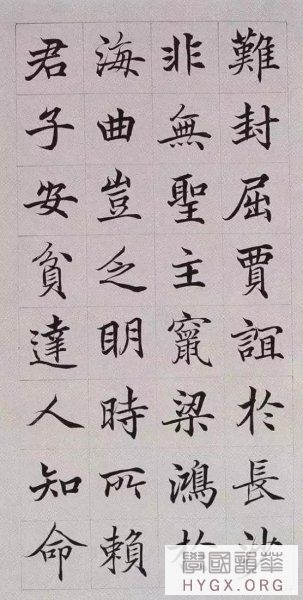 難封屈賈誼於長沙
非無聖主竄梁鴻於
海曲豈乏明時所賴
君子安貧達人知命
華韻國學
HYGX.ORG